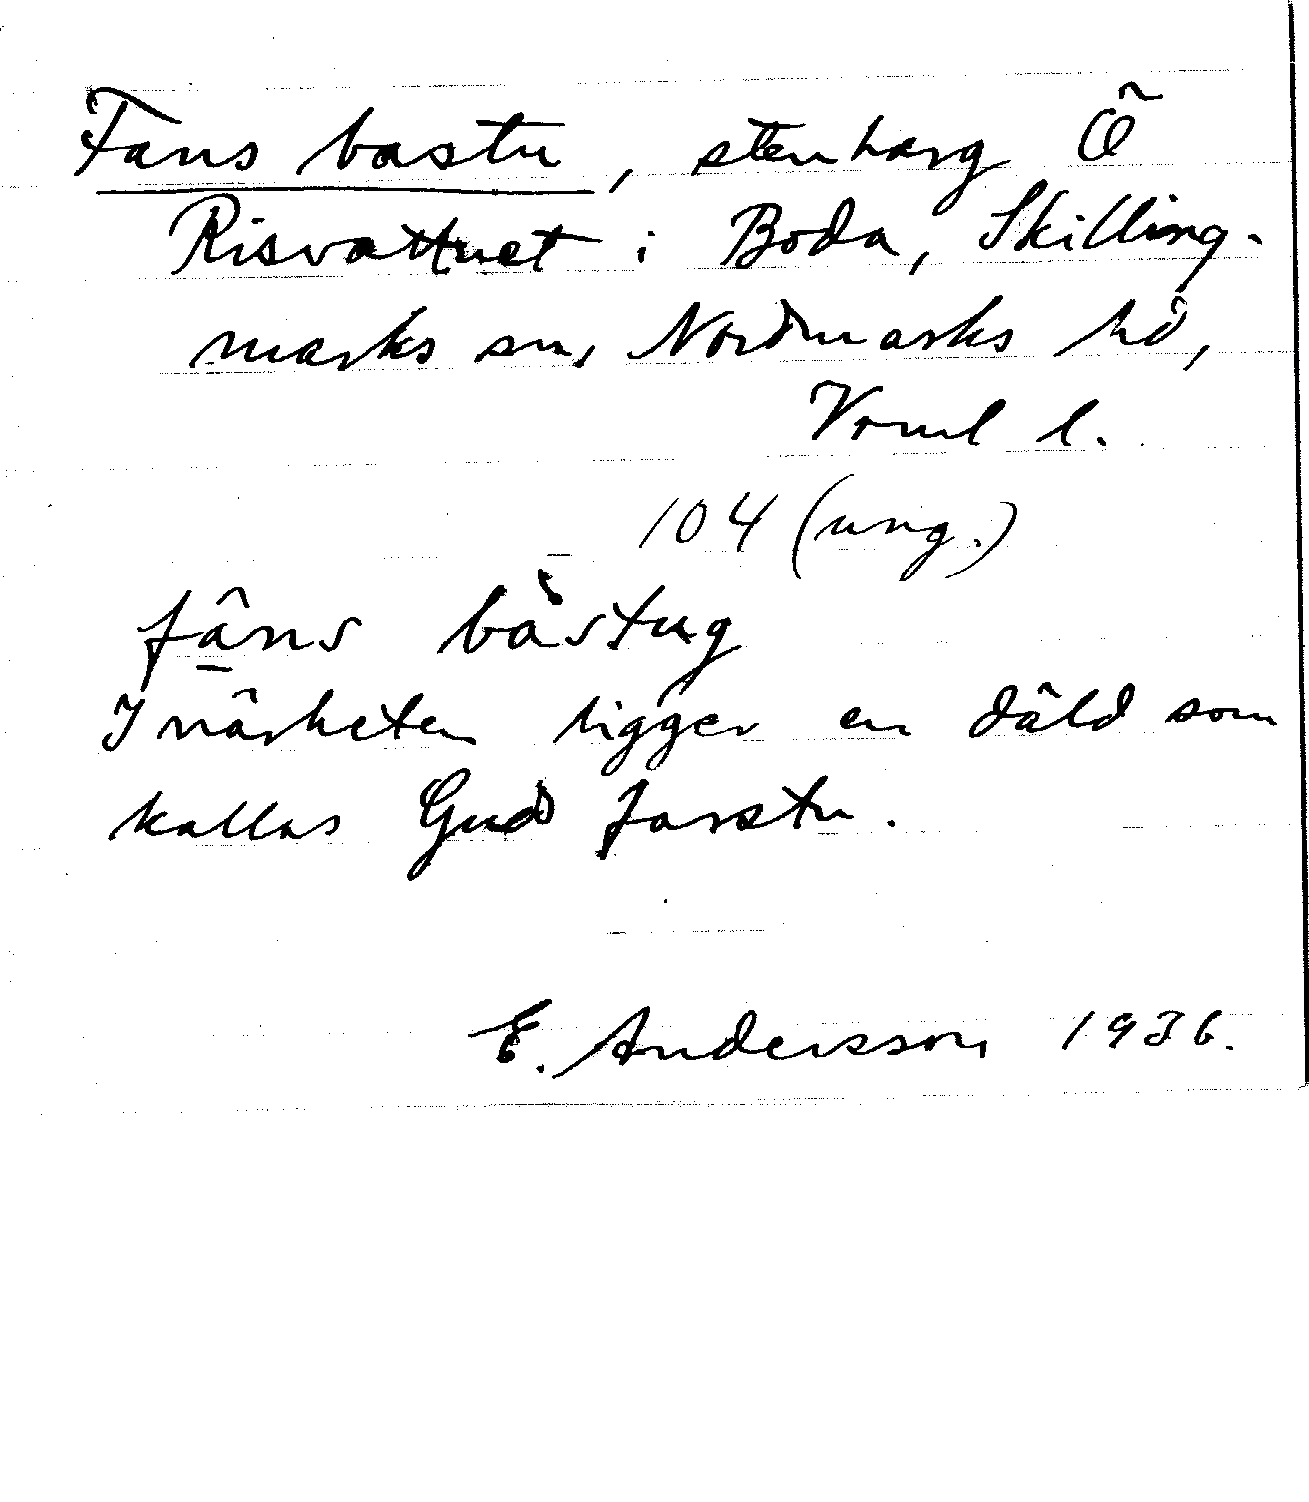 Fans bastu, stenharg Ö
Risvattnet i Boda, Skilling-
marks sn, Nordmarks hd,
Vrml l.
104 (ung.)
fâ̱ns bàstug
I närheten ligger en däld som
kallas Guds farstu.
E. Andersson 1936.